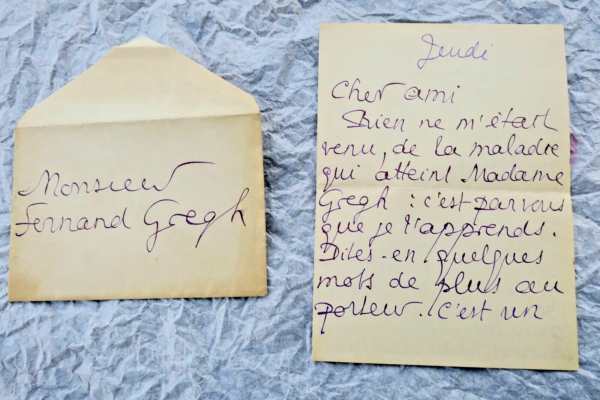 Monsieur
Fernand Gregh
Jeudi
Cher ami
Rien ne m'était
venu, de la maladie
qui atteint Madame
Gregh : c'est par vous
que je l'apprends.
Dites-en quelques
mots de plus au
porteur. C'est un